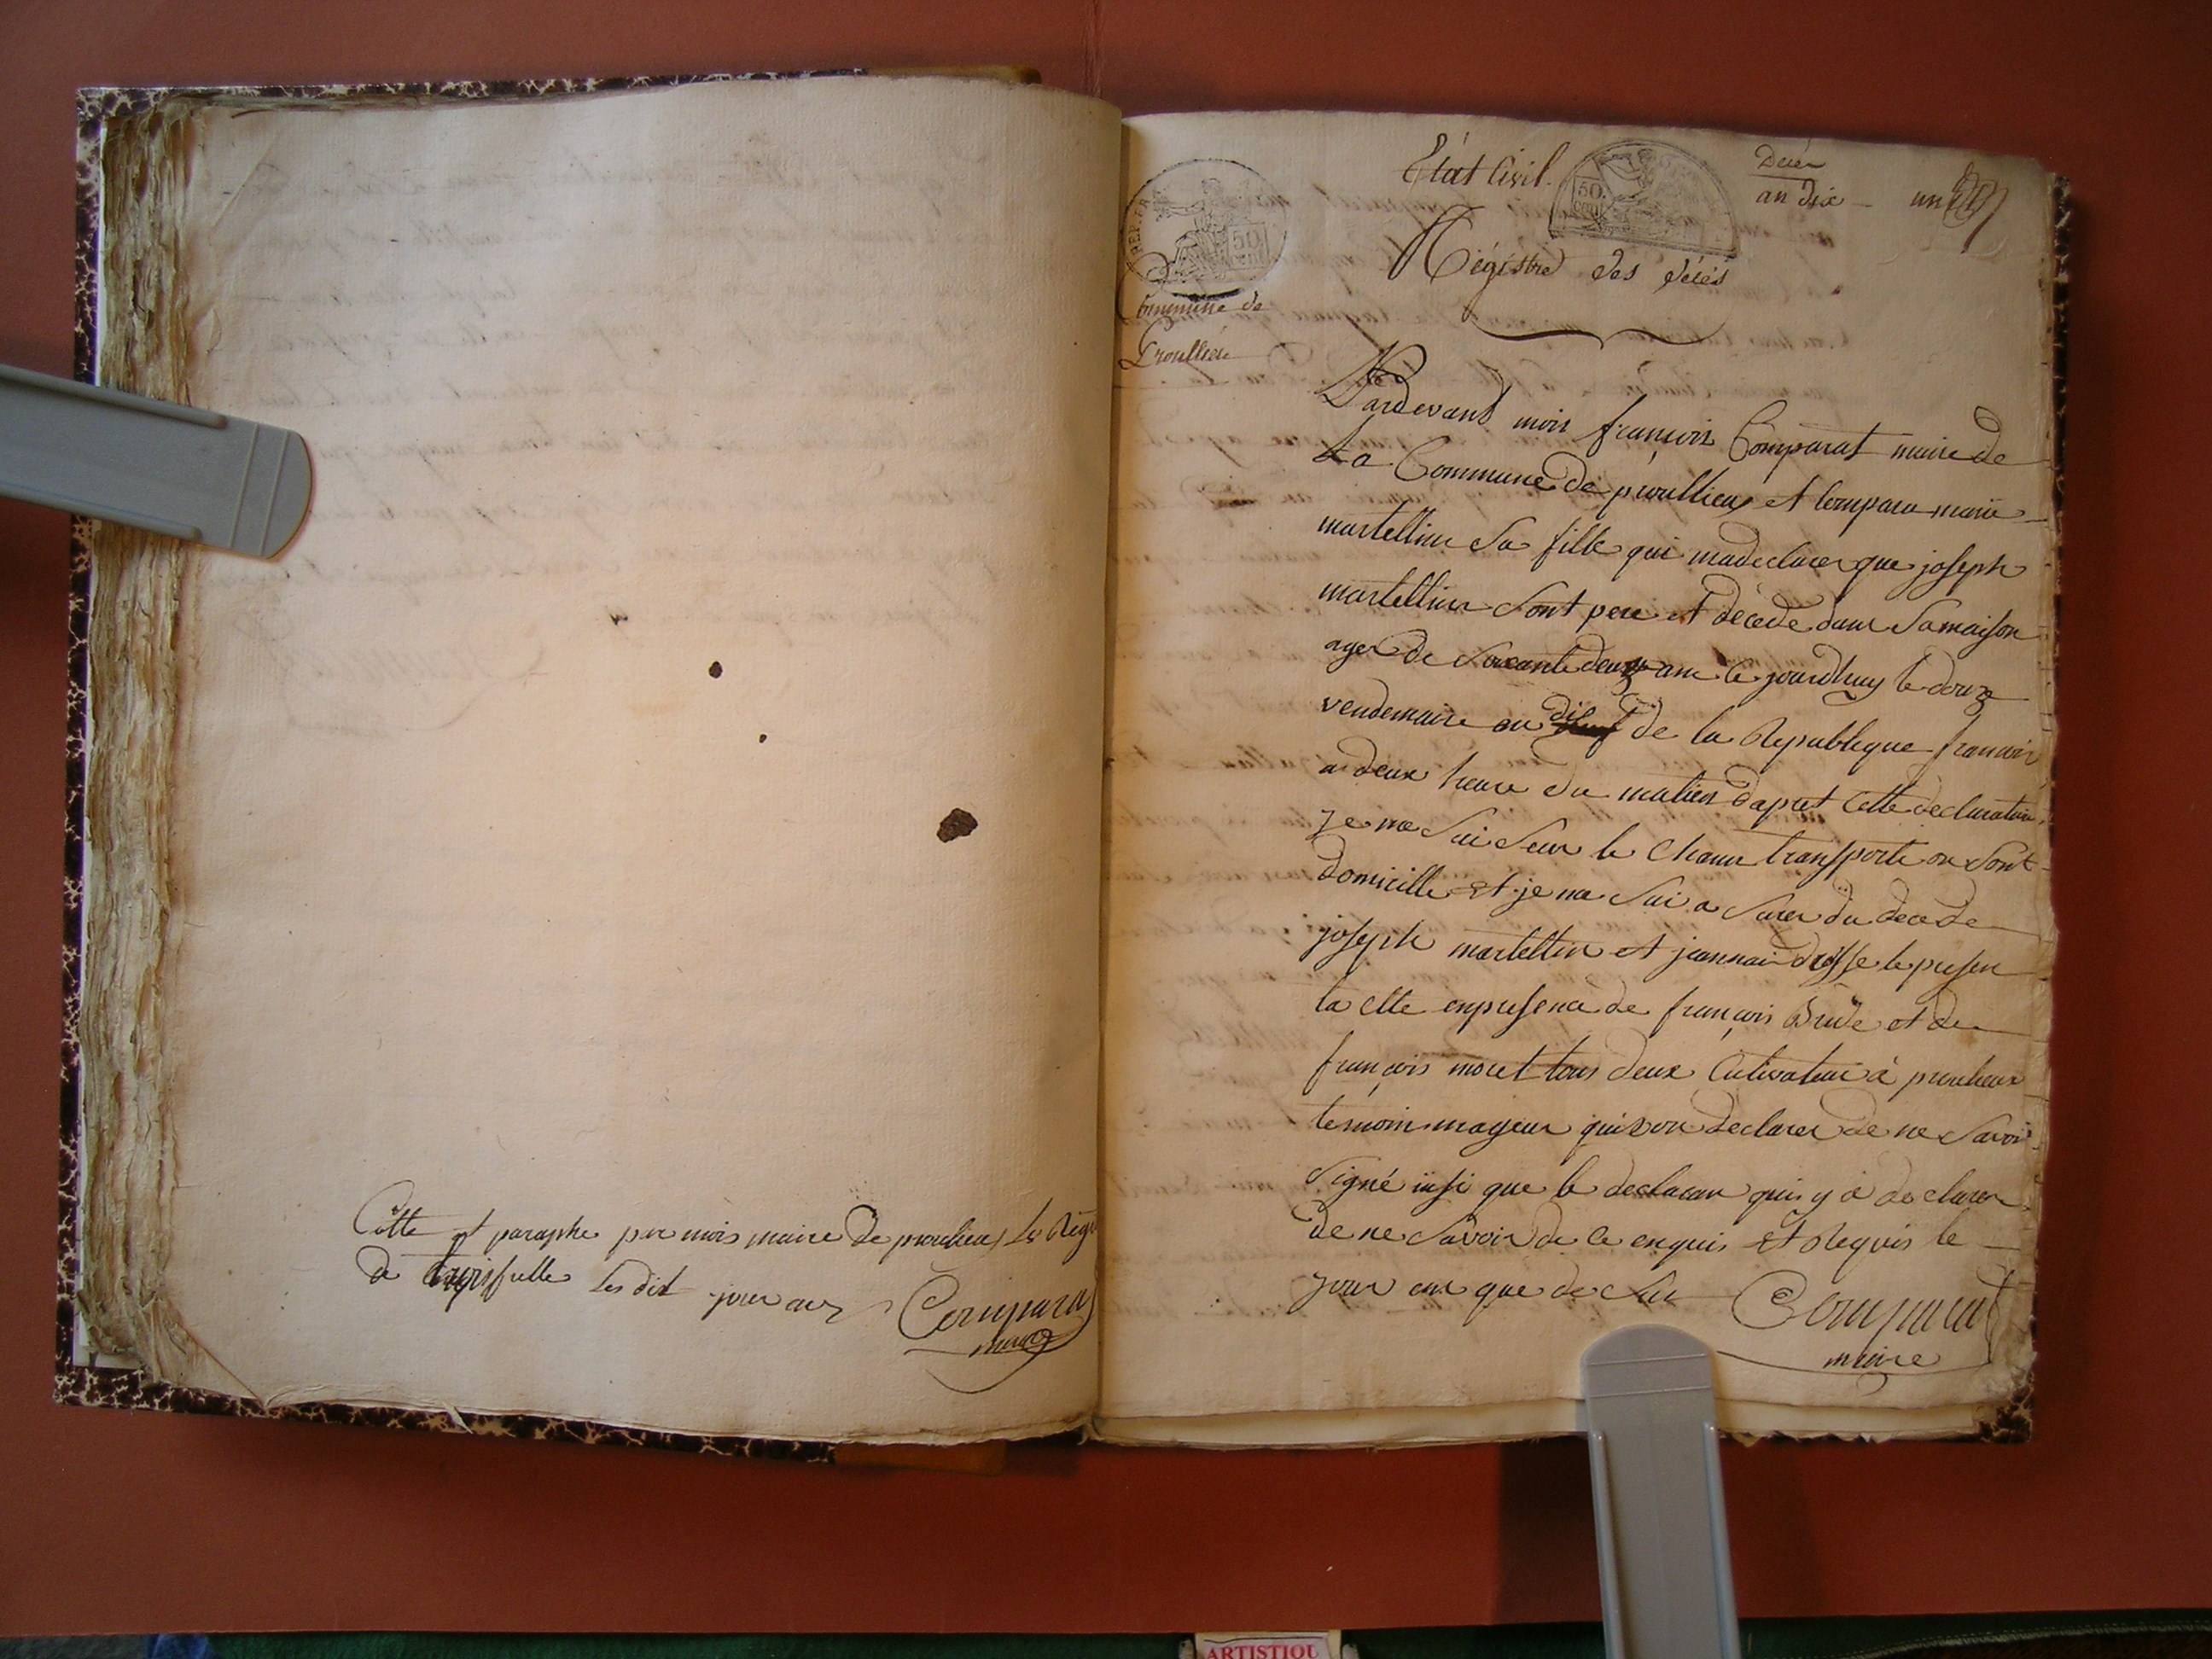 Cotte et paraphe par mois maire de proulieu Le Regi
de trois fulle les dit jour
Comparat
maire
Etat Civil.
50
cen
Decés
an dix un
REP. FRA
50
Commune de
Proullieu
Régistre des décés
Pardevant mois françois Comparat maire de
La Commune de proullieu et Comparu marie
martellin sa fille qui madeclarer que joseph
martellin sont pere et décédé dans Samaison
ager de Soixante deux ans ce jourdhuy le douze
vendemaire an dix de la Republique francois
a deux heure du matien dapret Cette declaration
je me sui sur le Cham transporte ou sont
domicille et je me sui a surer du decé de
joseph martellin et jeannai dresse le presen
ta Cte enpresence de françois et de
françois moret tous deux Cultivateur à proulieux
temoin mageur quison declarer de ne savoir
Signé insi que le declaran qui y a declarer
de ne savoir de ce enquis et Requis le
jour en que de su
Comparat
maire
ARTISTIQU